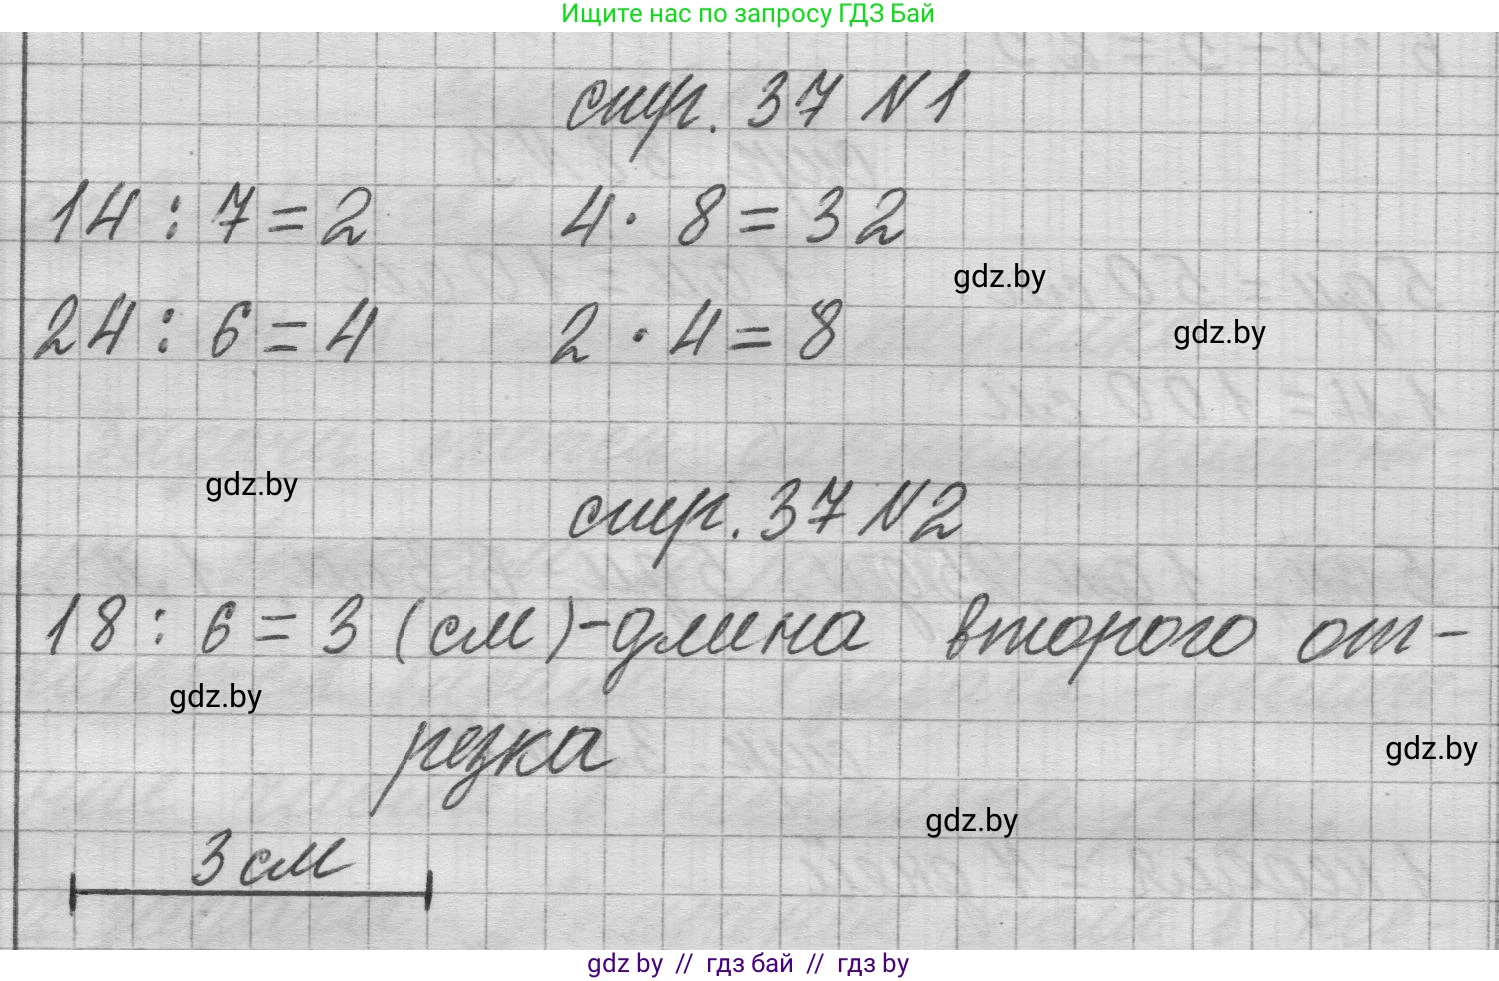 Ищите нас по запросу ГДЗ Бай
стр. 37 №1
14 : 7 = 2 4 · 8 = 32
gdz.by
24 : 6 = 4 2 · 4 = 8
gdz.by
gdz.by
стр. 37 №2
18 : 6 = 3 (см) - длина второго от-
gdz.by
резка
gdz.by
gdz.by
3 см
gdz by // гдз бай // гдз by